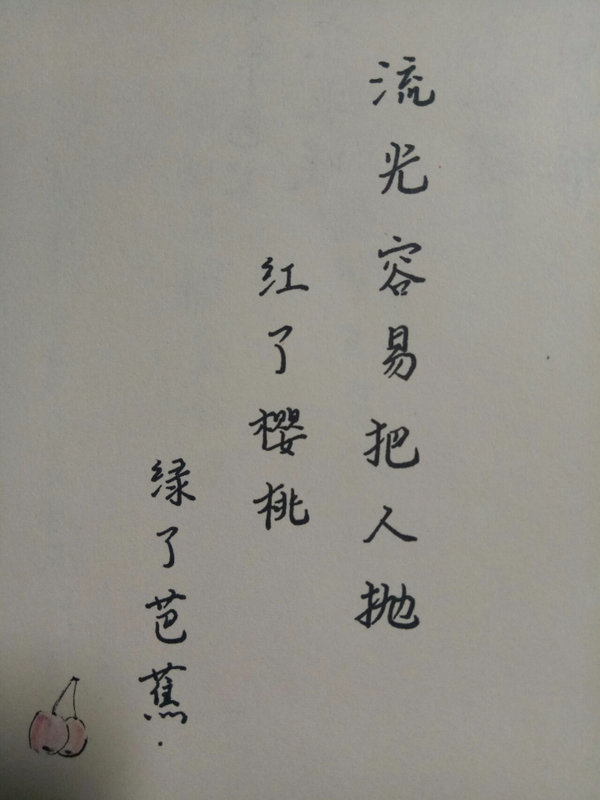 流光容易把人抛
红了樱桃
绿了芭蕉.